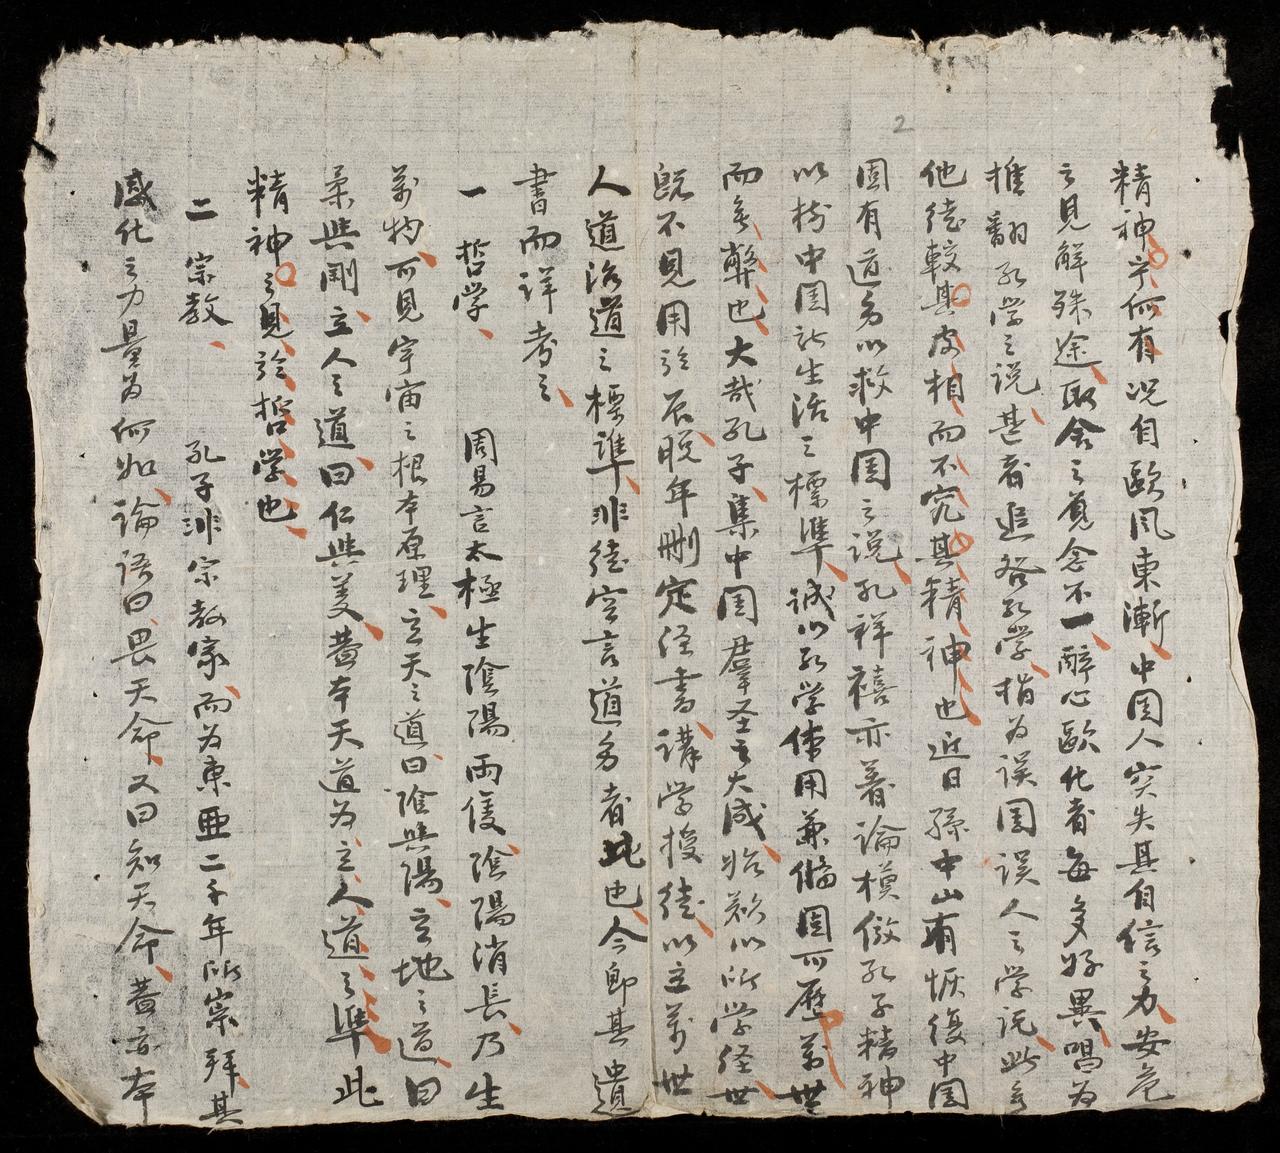 2
精神宁何有况自歐风東漸中国人突失其自信之力安危
之見解殊途取舍之覌念不一醉心歐化者每多好異唱为
推翻孔学之说甚者追咎孔学指为误国误人之学说此多
他徒較其皮相而不究其精神也近日孫中山有恢復中国
固有道多以救中国之说孔祥禧亦著論模倣孔子精神
以树中国新生活之標準誠以孔学体用兼備国而歷万世
而無弊也大哉孔子集中国羣圣之大成始欲以所学经世
既不見用於辰晚年刪定经書講学授徒以立萬世
人道治道之標準非徒空言道多者此也今即其遺
書而详考之
一 哲学 周易言太極生陰陽両侻陰陽消長乃生
萬物可見宇宙之根本原理立天之道曰陰與陽立地之道曰
柔與剛立人之道曰仁與义蓋本天道为立人道之準此
精神之見於哲学也
二 宗教 孔子非宗教家而为東亜二千年所崇拜其
感化之力量为何如論语曰畏天命又曰知天命蓋亦本